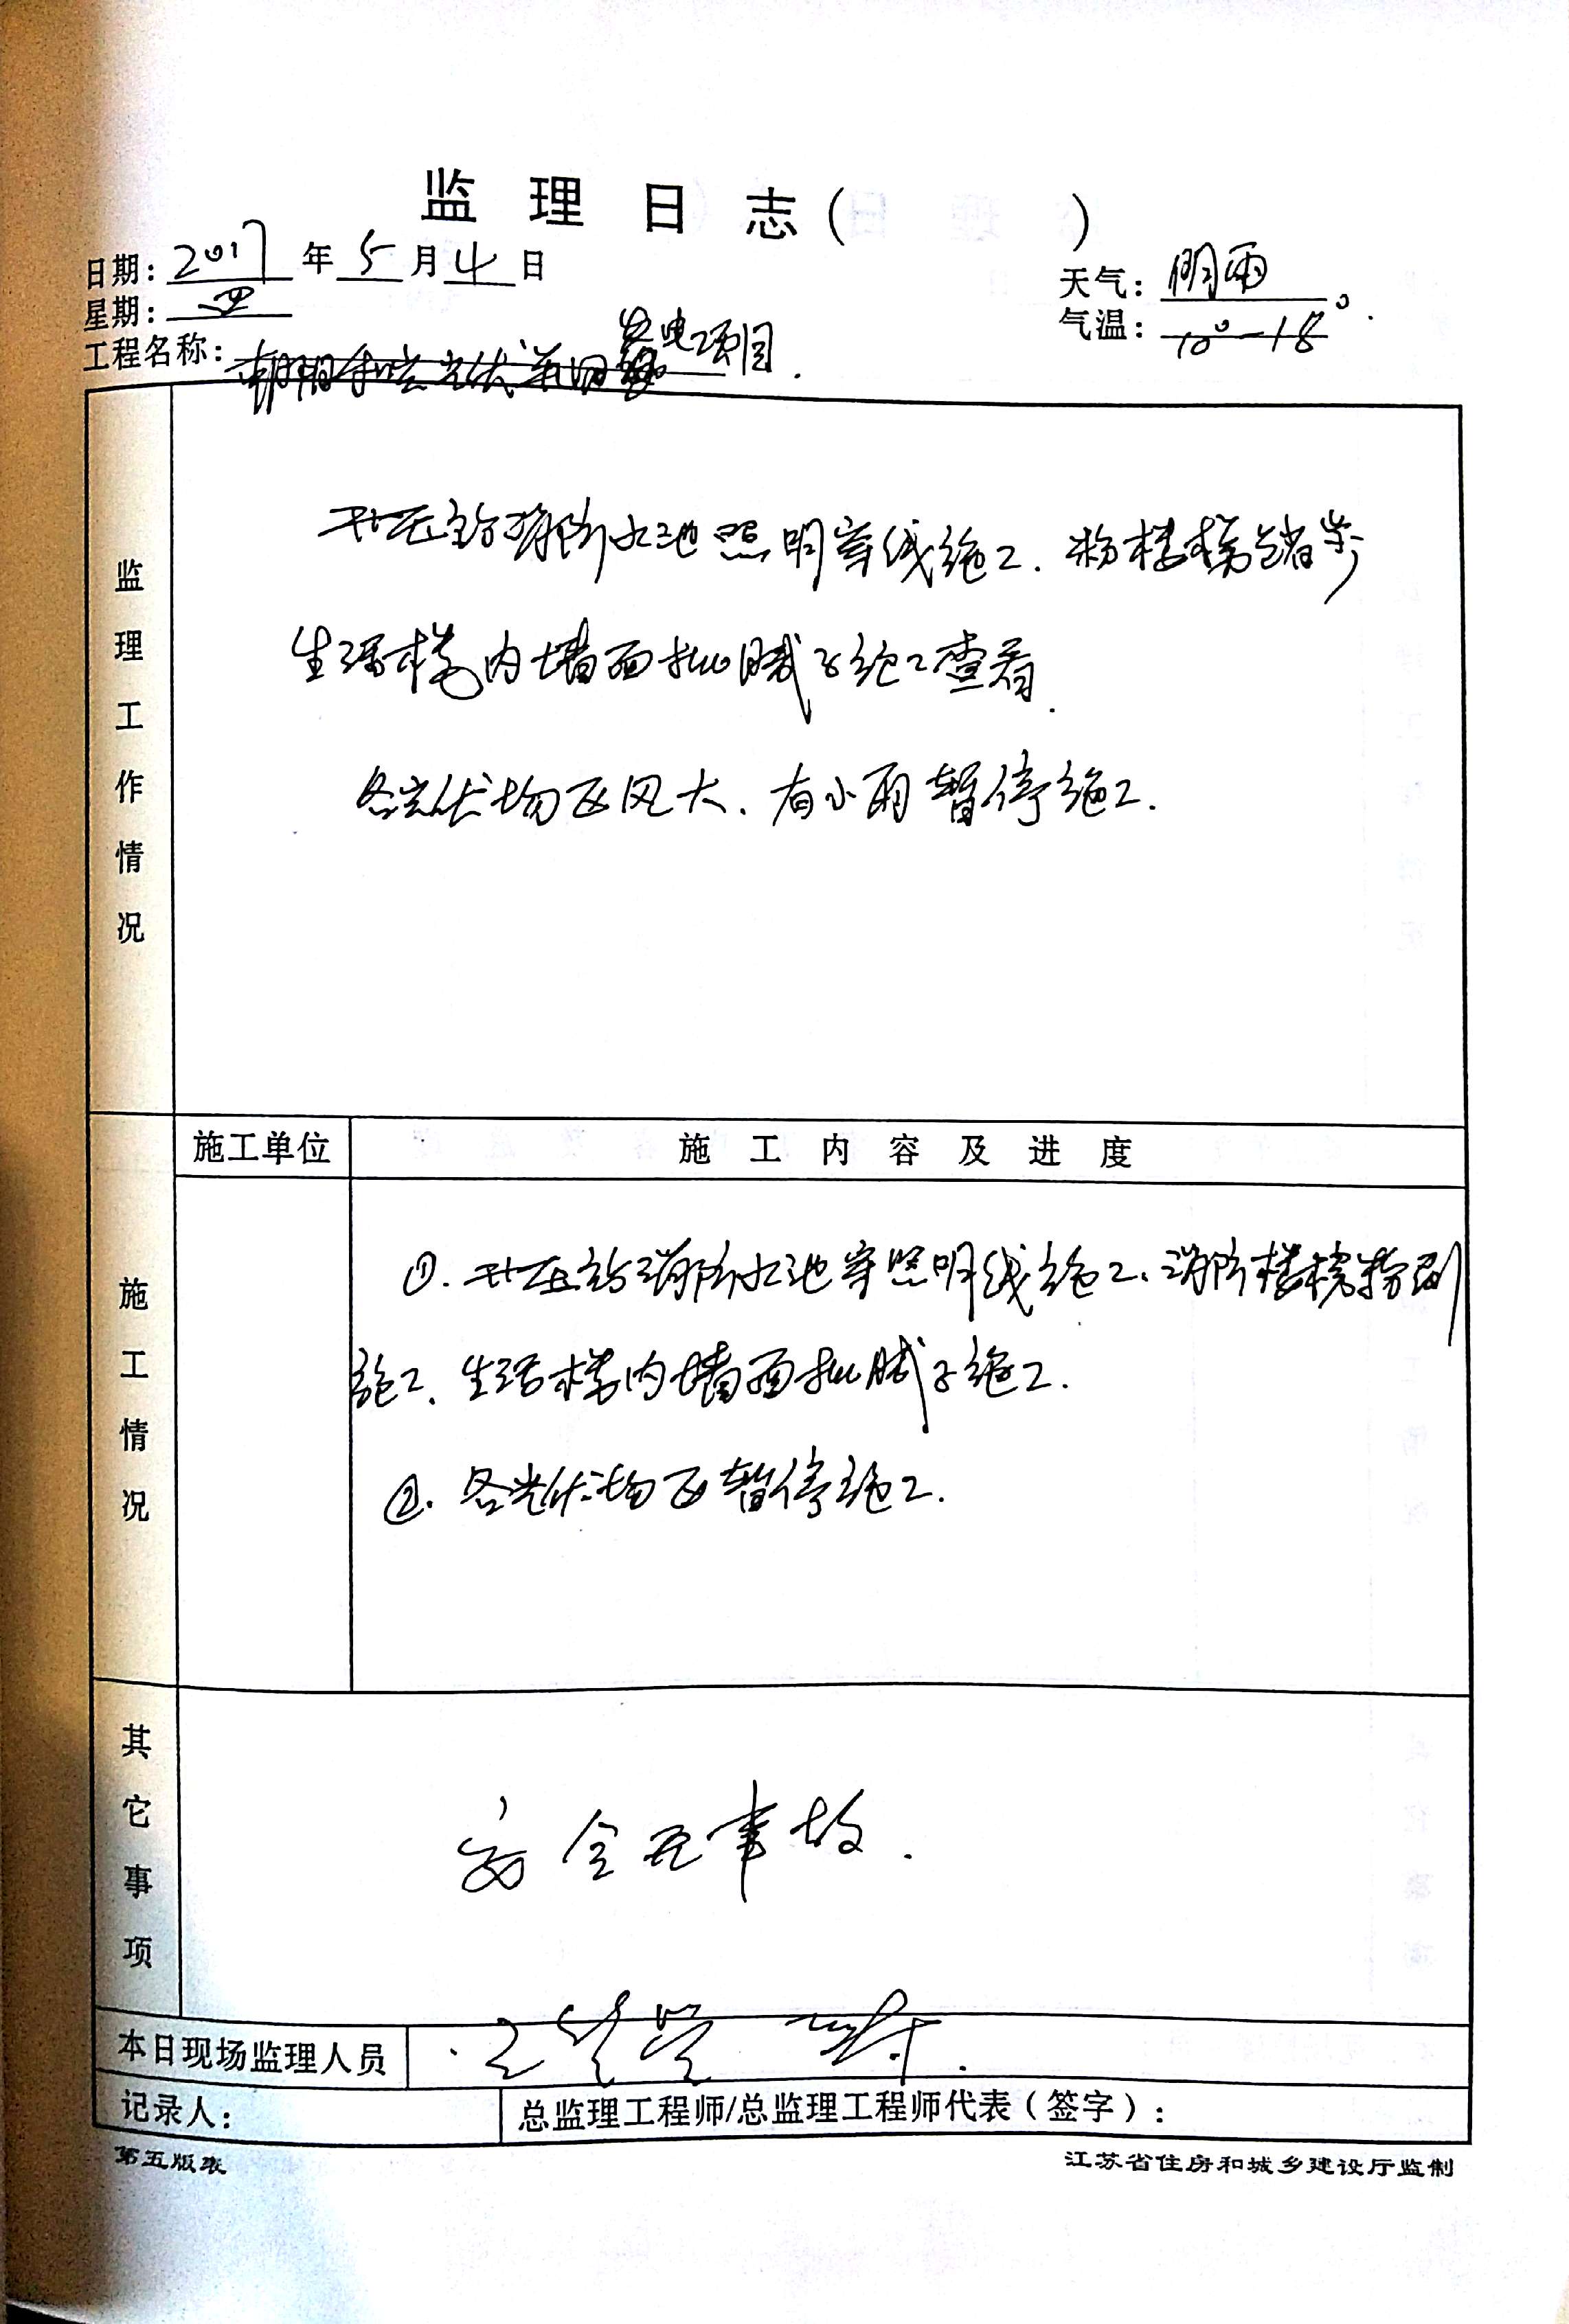 监理日志( )
日期: 2017 年 5 月 4 日
天气: 阴雨
星期: 四
气温: 10°-18°.
工程名称: 朝阳 光伏并网发电项目.
监理工作情况
升压站消防水池照明穿线施工. 粉楼梯踏步
生活楼内墙面批腻子施工查看.
各光伏场区风大. 有小雨暂停施工.
施工单位
施工内容及进度
施工情况
①. 升压站消防水池穿照明线施工. 消防楼梯粉刷
施工. 生活楼内墙面批腻子施工.
②. 各光伏场区暂停施工.
其它事项
安全无事故.
本日现场监理人员
记录人:
总监理工程师/总监理工程师代表(签字):
第五版表
江苏省住房和城乡建设厅监制